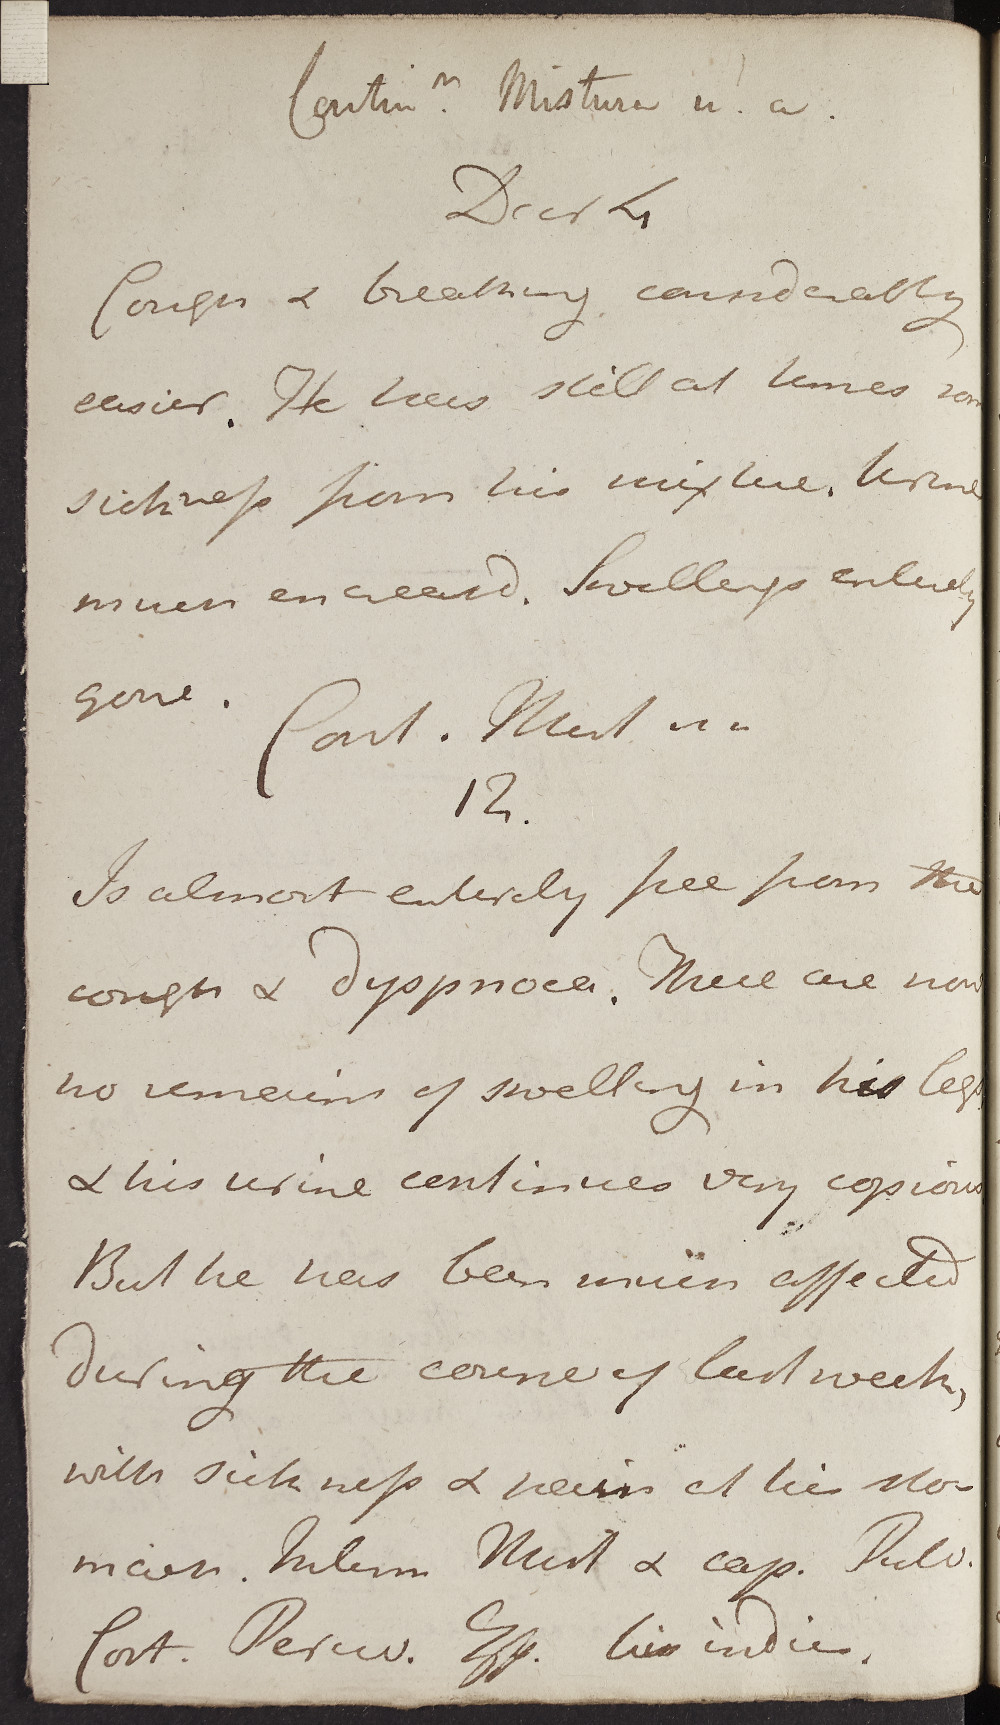 Contin^r. Mistura u. a.
Decr 4
Cough & breathing considerably
easier. He has still at times som
sickness from his mixture. Urine
much encreas'd. Swellings entirely
gone.
Cont. Mist u a
12.
Is almost entirely free from the
cough & dyspnoea. There are now
no remains of swelling in his legs
& his urine continues very copious
But he has been much affected
during the course of last week,
with sickness & pain at his sto-
mach. Interm Mist & cap. Pulv.
Cort. Peruv. bis indies.